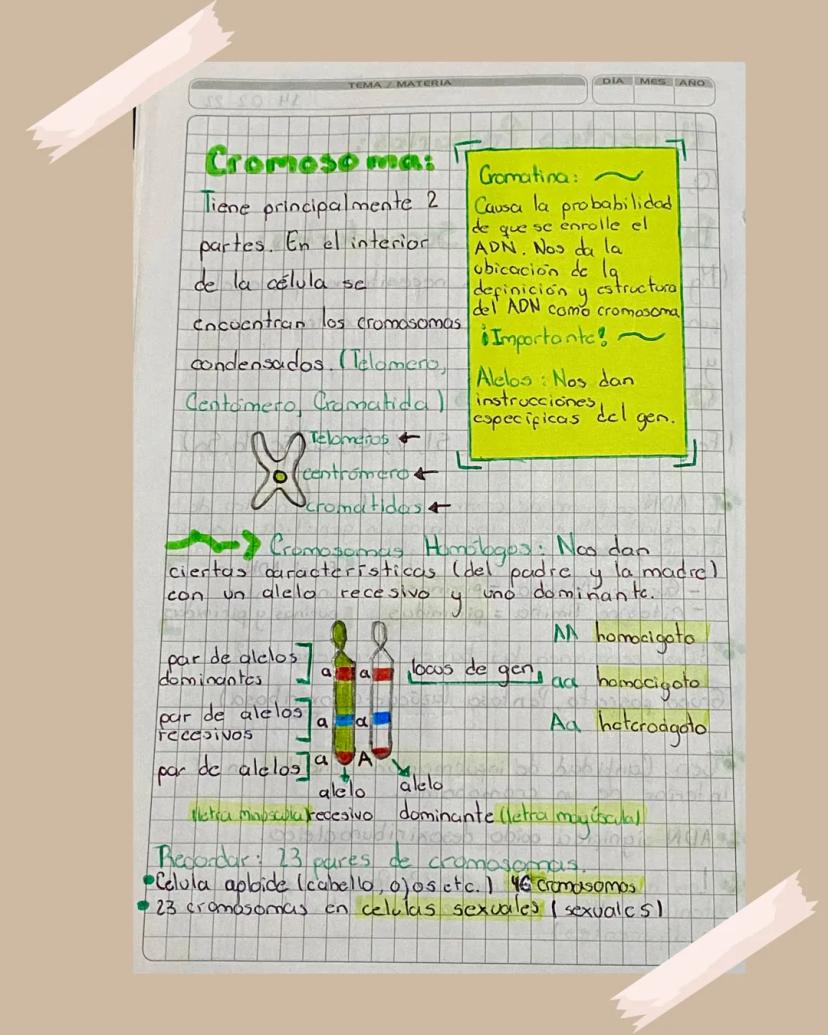 TEMA / MATERIA
DÍA MES AÑO
Cromosoma:
Tiene principalmente 2
partes. En el interior
de la célula se
encuentran los cromosomas
condensados. (Telomero,
Centómero, Cromatida)
Cromatina:
Causa la probabilidad
de que se enrolle el
ADN. Nos da la
ubicación de la
definición y estructura
del ADN como cromosoma
¡Importante!
Alelos: Nos dan
instrucciones
específicas del gen.
Telomeros
centrómero
cromátidas
Cromosomas Homólogos: Nos dan
ciertas características (del padre y la madre)
con un alelo recesivo y uno dominante.
par de alelos
dominantes
a a
locus de gen
par de alelos
recesivos
a a
par de alelos
a A
AA homocigoto
aa homocigoto
Aa heterocigoto
alelo
recesivo
(letra minúscula)
alelo
dominante (letra mayúscula)
Recordar: 23 pares de cromosomas.
Célula aploide (cabello, ojos etc.) 46 cromosomas
23 cromosomas en celulas sexuales (sexuales)